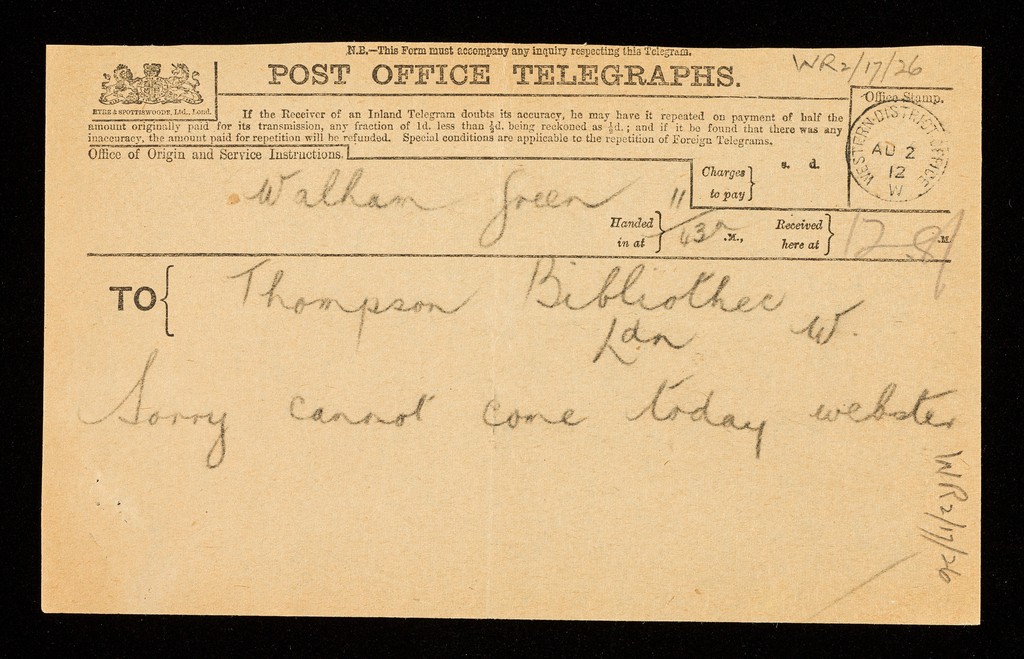 N.B.—This Form must accompany any inquiry respecting this Telegram.
POST OFFICE TELEGRAPHS.
WR2/17/26
EYRE & SPOTTISWOODE, Ltd., Lond.
If the Receiver of an Inland Telegram doubts its accuracy, he may have it repeated on payment of half the
amount originally paid for its transmission, any fraction of 1d. less than ½d. being reckoned as ½d.; and if it be found that there was any
inaccuracy, the amount paid for repetition will be refunded. Special conditions are applicable to the repetition of Foreign Telegrams.
Office Stamp.
WESTERN-DISTRICT OFFICE
AU 2
12
W
Office of Origin and Service Instructions.
Charges to pay
s. d.
Walham Green
Handed in at
11/43a
.M.,
Received here at
.M.
TO
Thompson Bibliothec
Ldn W.
Sorry cannot come today webster
WR2/17/26